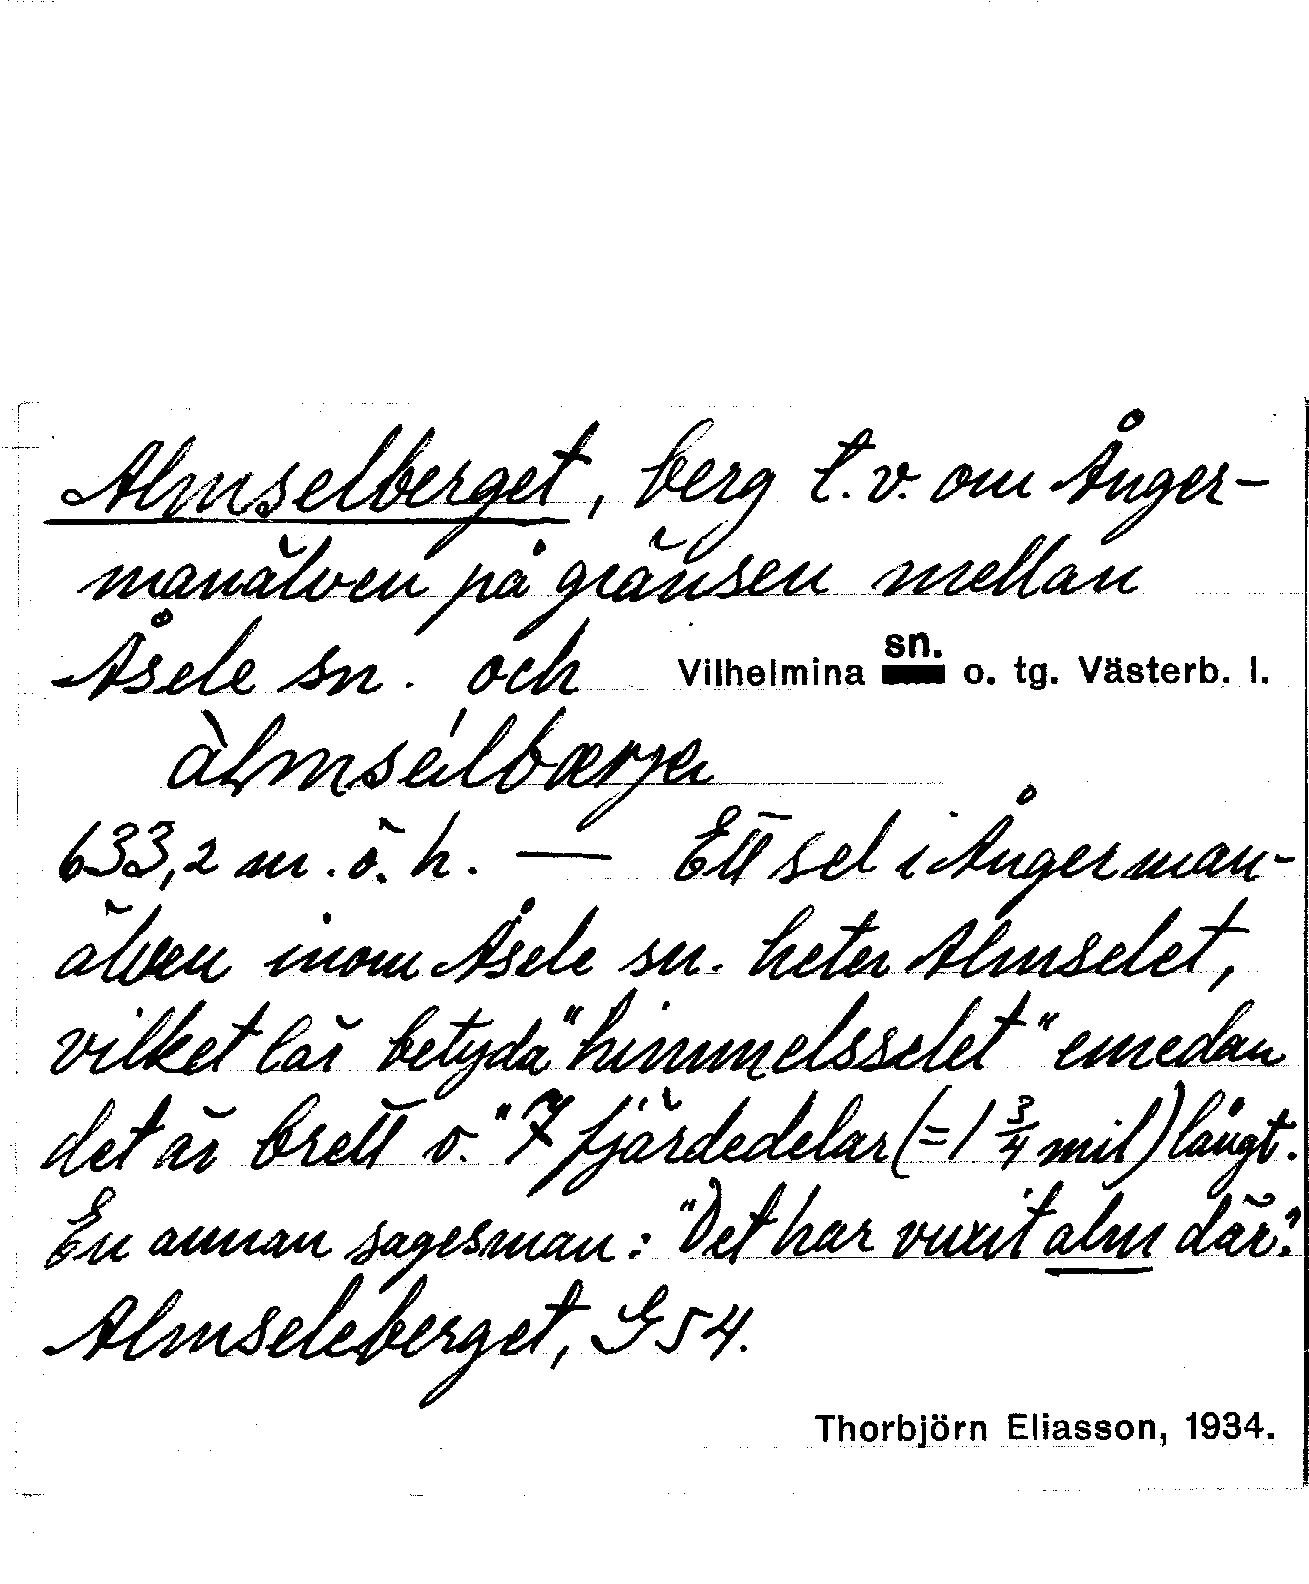 Almselberget, berg t.v. om Ånger-
manälven på gränsen mellan
Åsele sn. och Vilhelmina sn. o. tg. Västerb. l.
633,2 m.ö.h. — Ett sel i Ångerman-
älven inom Åsele sn. heter Almselet,
vilket lär betyda "himmelsselet" emedan
det är brett o. "7 fjärdedelar (=1 3/4 mil) långt.
En annan sagesman: "Det har vuxit alm där".
Almseleberget, G 54.
Thorbjörn Eliasson, 1934.